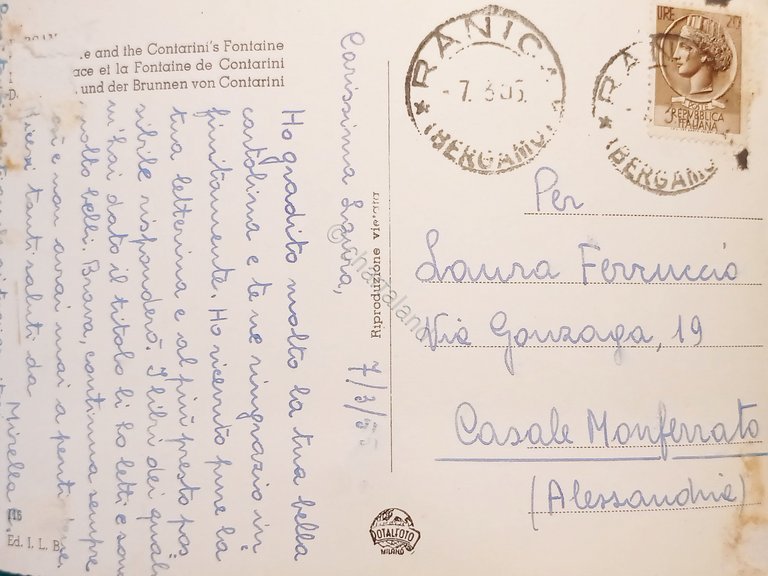 e and the Contarini's Fontaine
ace et la Fontaine de Contarini
und der Brunnen von Contarini
Carissima Laura,
7/3/55
Ho gradito molto la tua bella
cartolina e te ne ringrazio in
finitamente. Ho ricevuto pure la
tua letterina e al più presto pos
sibile risponderò. I libri dei quali
m'hai dato il titolo li ho letti e sono
molto belli. Brava, continua sempre
così e non avrai mai a penti
tanti saluti da
Mirella
Riproduzione vietata
RANICA
(BERGAMO)
- 7. 3.05.
RANI
(BERGAMO
LIRE 20
REPVBBLICA
ITALIANA
Per
Laura Ferruccio
Via Gonzaga, 19
Casale Monferrato
(Alessandria)
ROTALFOTO
MILANO
115
Ed. I. L. B
© chagaland